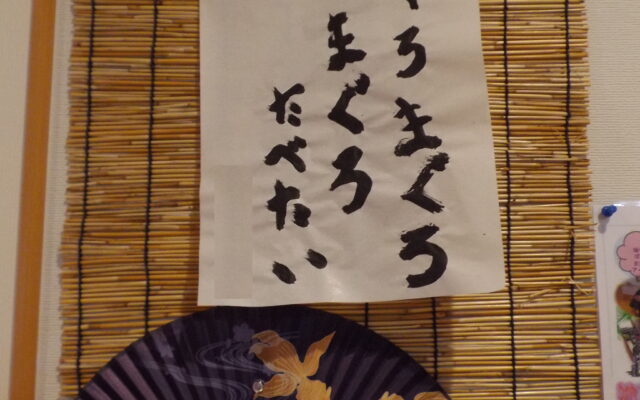 ろまぐろ
まぐろ
たべたい